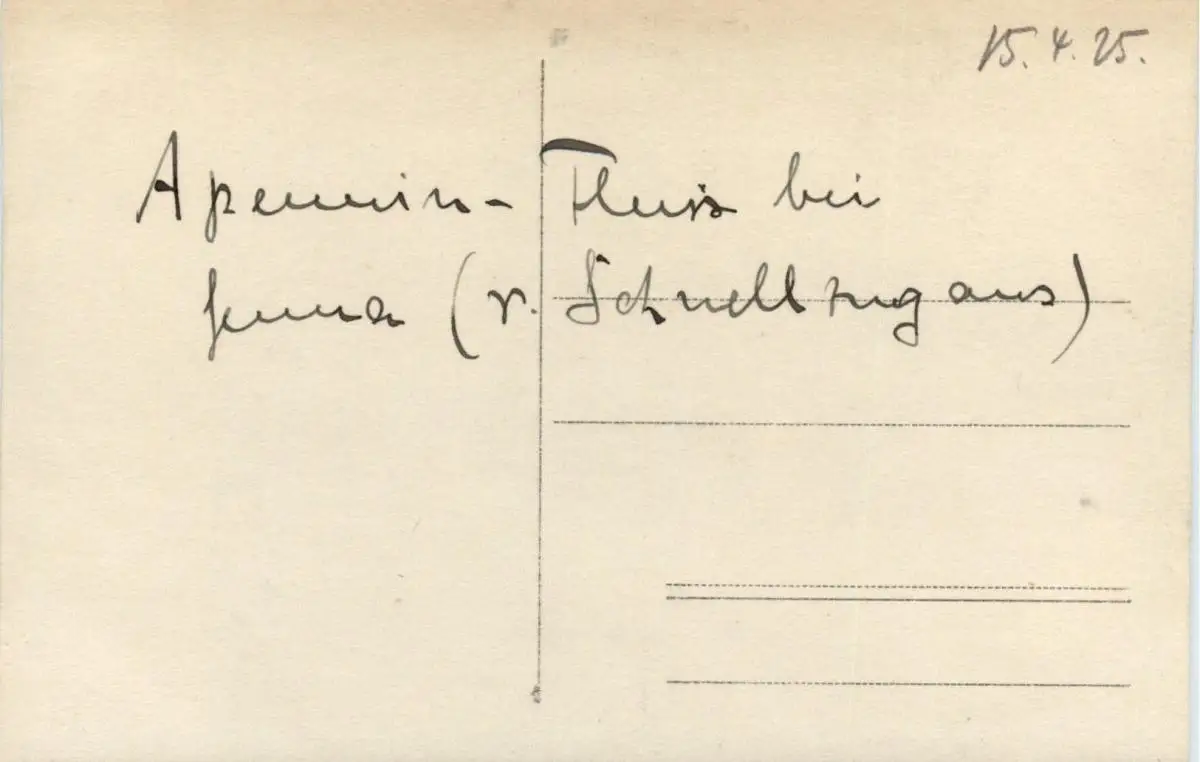 15. 4. 25.
Apennin- Fluss bei
Genua (v. Schnellzug aus)